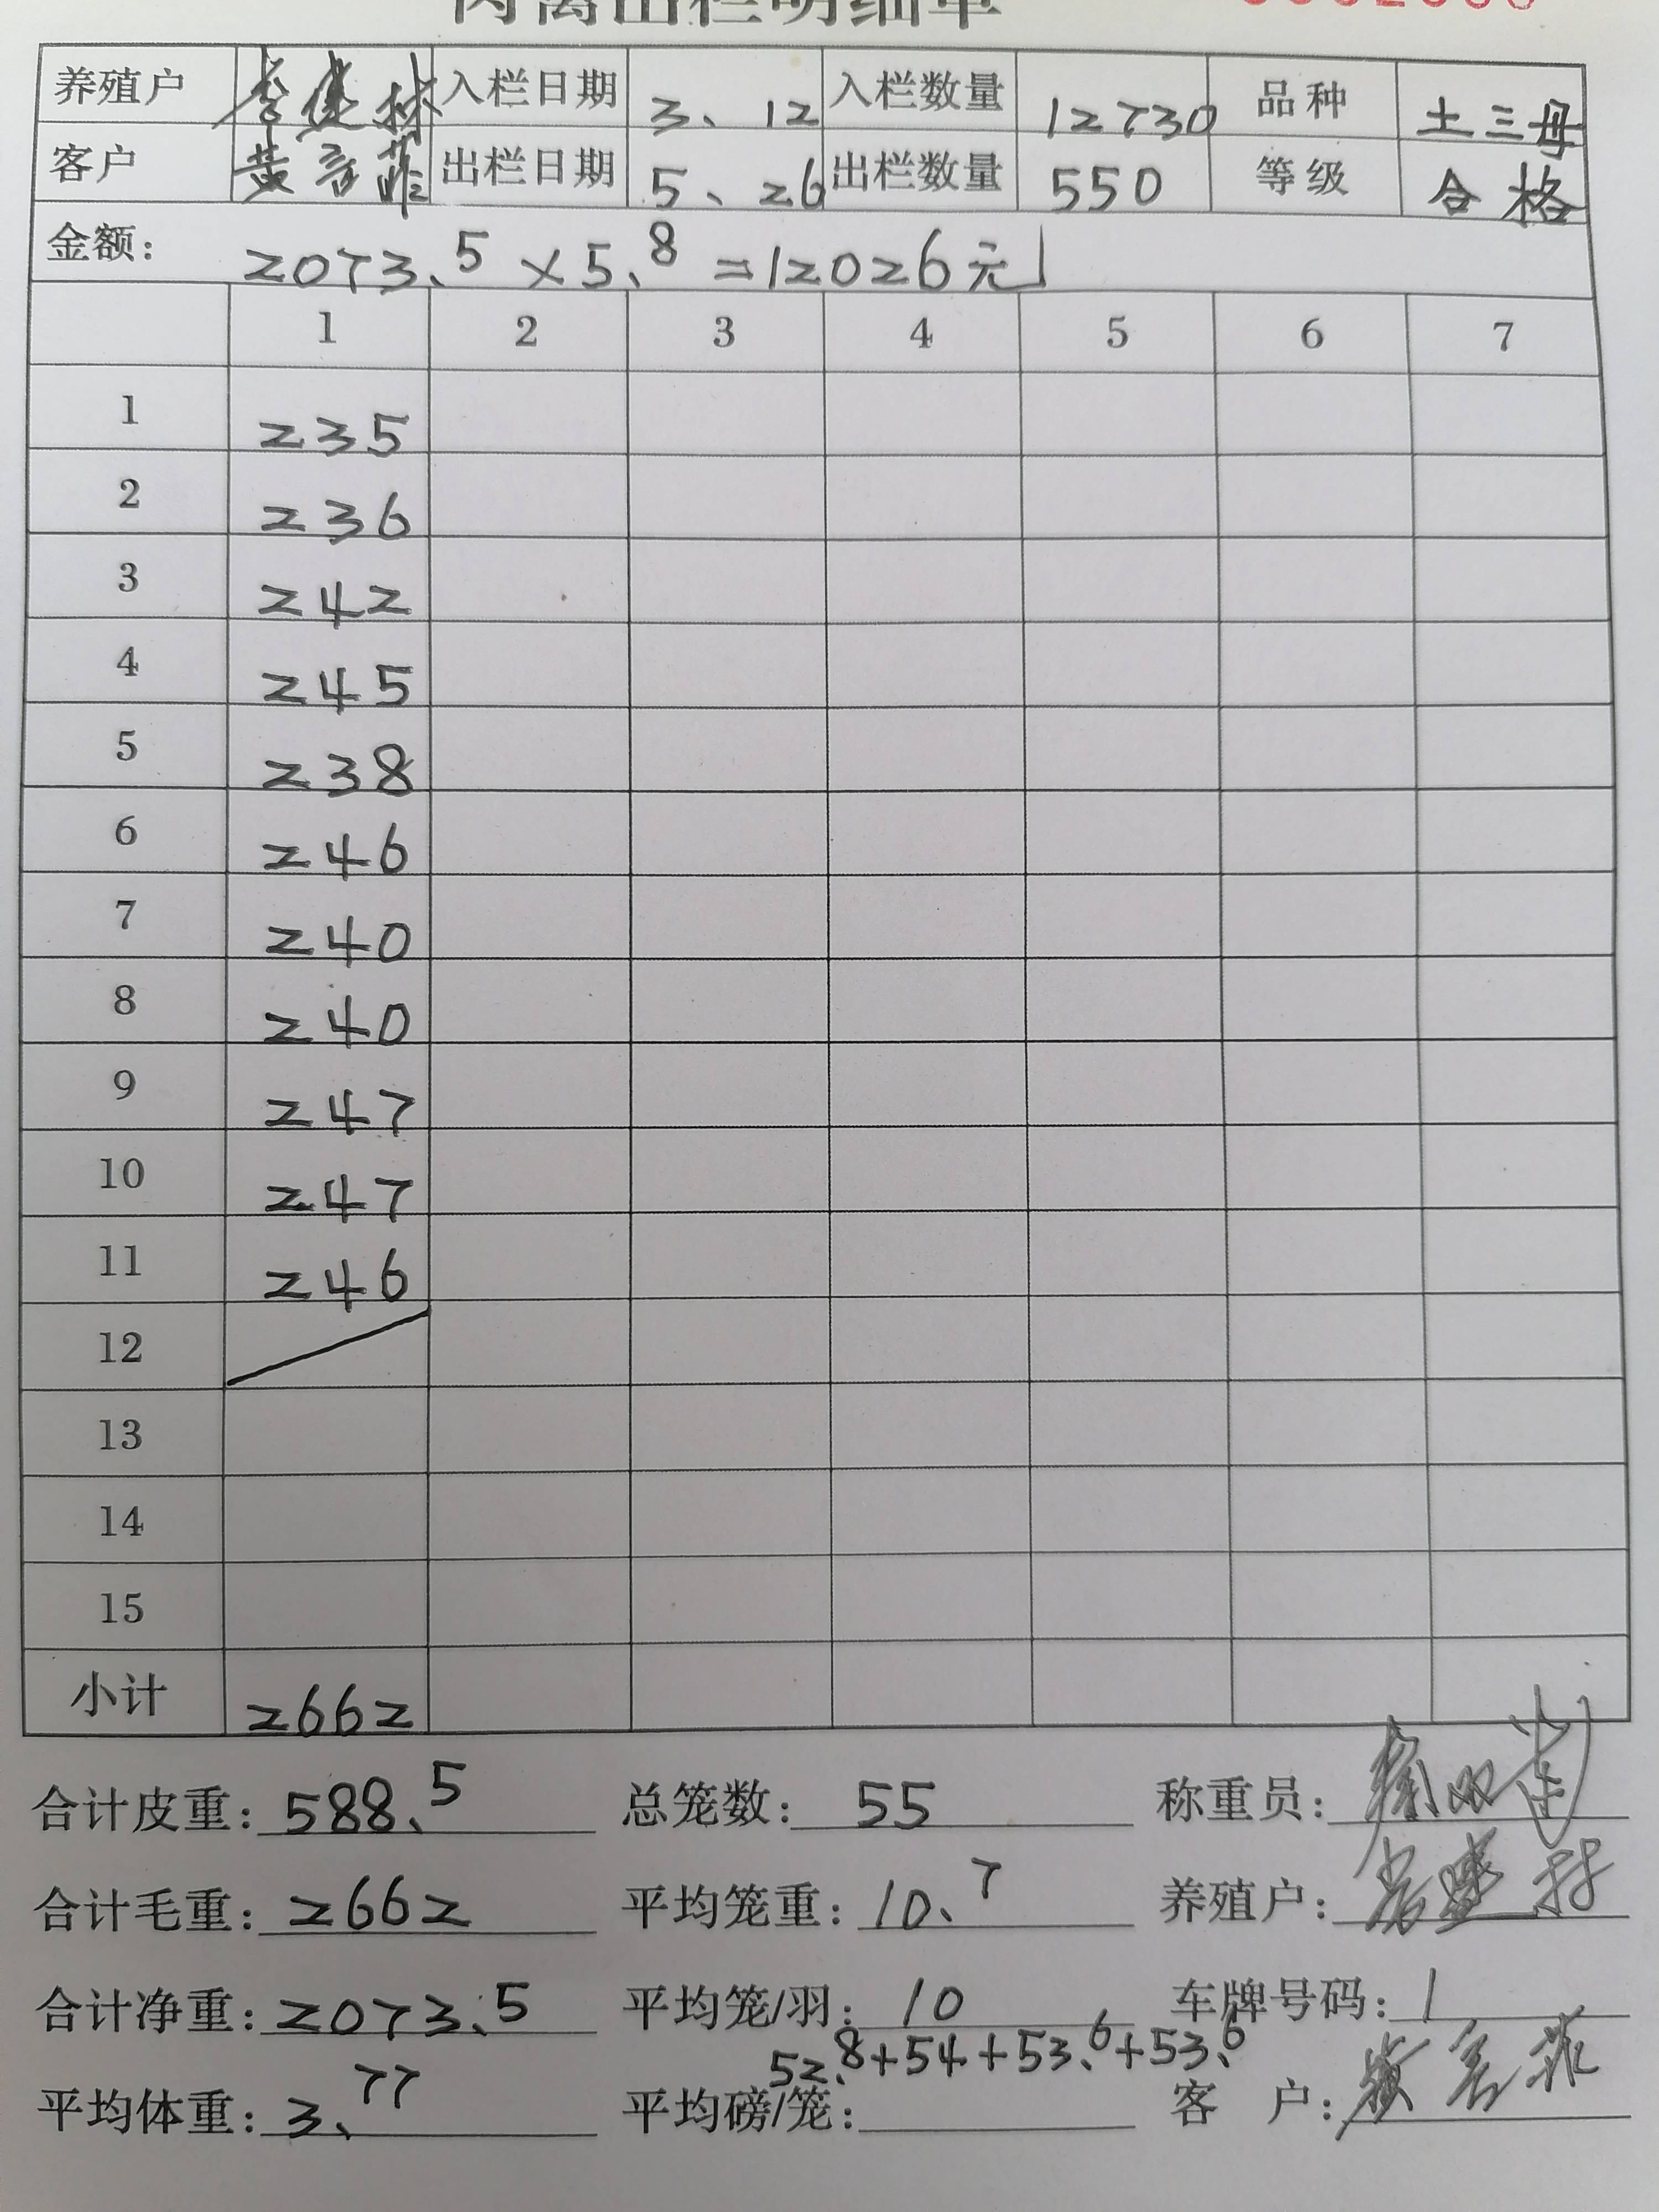 肉禽出栏明细单
养殖户 李建林 入栏日期 3、12 入栏数量 12730 品种 土三母
客户 黄言菲 出栏日期 5、26 出栏数量 550 等级 合格
金额: 2073.5 × 5.8 = 12026元
1 2 3 4 5 6 7
1 235
2 236
3 242
4 245
5 238
6 246
7 240
8 240
9 247
10 247
11 246
12
13
14
15
小计 2662
合计皮重: 588.5 总笼数: 55 称重员:
合计毛重: 2662 平均笼重: 10.7 养殖户: 李建林
合计净重: 2073.5 平均笼/羽: 10 车牌号码: 1
52.8+54+53.6+53.6
平均体重: 3.77 平均磅/笼: 客 户: 黄言菲